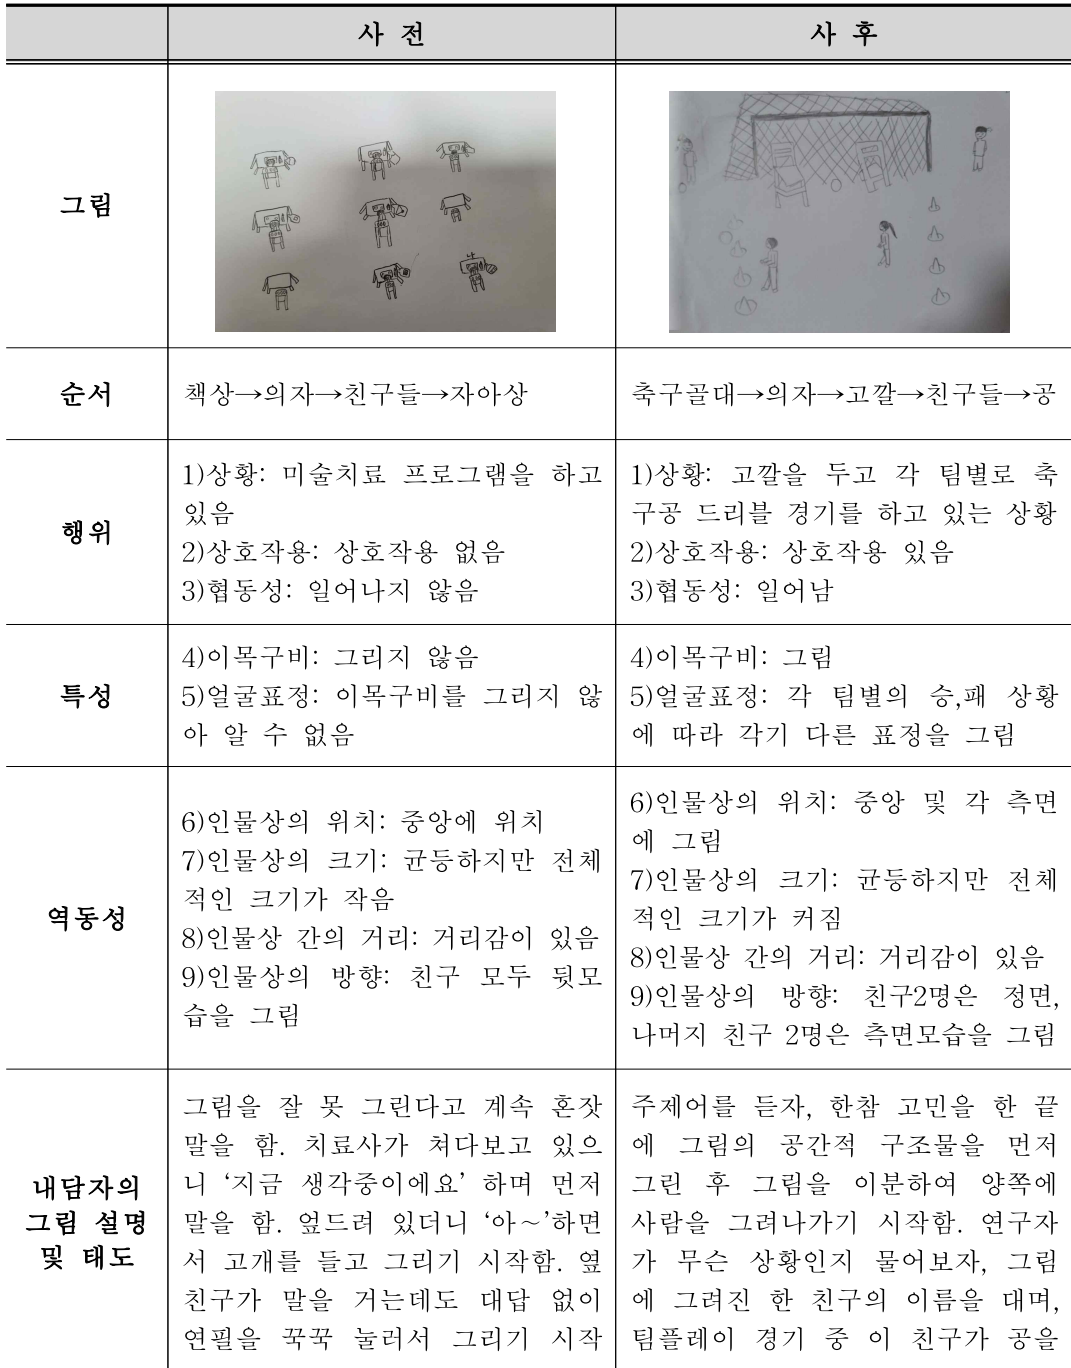 사 전
사 후
그림
나
순서
책상→의자→친구들→자아상
축구골대→의자→고깔→친구들→공
행위
1)상황: 미술치료 프로그램을 하고
있음
2)상호작용: 상호작용 없음
3)협동성: 일어나지 않음
1)상황: 고깔을 두고 각 팀별로 축
구공 드리블 경기를 하고 있는 상황
2)상호작용: 상호작용 있음
3)협동성: 일어남
특성
4)이목구비: 그리지 않음
5)얼굴표정: 이목구비를 그리지 않
아 알 수 없음
4)이목구비: 그림
5)얼굴표정: 각 팀별의 승,패 상황
에 따라 각기 다른 표정을 그림
역동성
6)인물상의 위치: 중앙에 위치
7)인물상의 크기: 균등하지만 전체
적인 크기가 작음
8)인물상 간의 거리: 거리감이 있음
9)인물상의 방향: 친구 모두 뒷모
습을 그림
6)인물상의 위치: 중앙 및 각 측면
에 그림
7)인물상의 크기: 균등하지만 전체
적인 크기가 커짐
8)인물상 간의 거리: 거리감이 있음
9)인물상의 방향: 친구2명은 정면,
나머지 친구 2명은 측면모습을 그림
내담자의
그림 설명
및 태도
그림을 잘 못 그린다고 계속 혼잣
말을 함. 치료사가 쳐다보고 있으
니 ‘지금 생각중이에요’ 하며 먼저
말을 함. 엎드려 있더니 ‘아～’하면
서 고개를 들고 그리기 시작함. 옆
친구가 말을 거는데도 대답 없이
연필을 꾹꾹 눌러서 그리기 시작
주제어를 듣자, 한참 고민을 한 끝
에 그림의 공간적 구조물을 먼저
그린 후 그림을 이분하여 양쪽에
사람을 그려나가기 시작함. 연구자
가 무슨 상황인지 물어보자, 그림
에 그려진 한 친구의 이름을 대며,
팀플레이 경기 중 이 친구가 공을